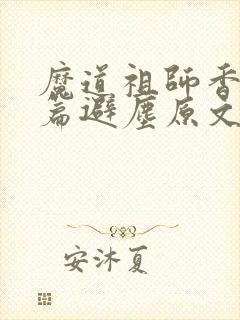 魔道祖師香
篇避塵原文
安沐夏